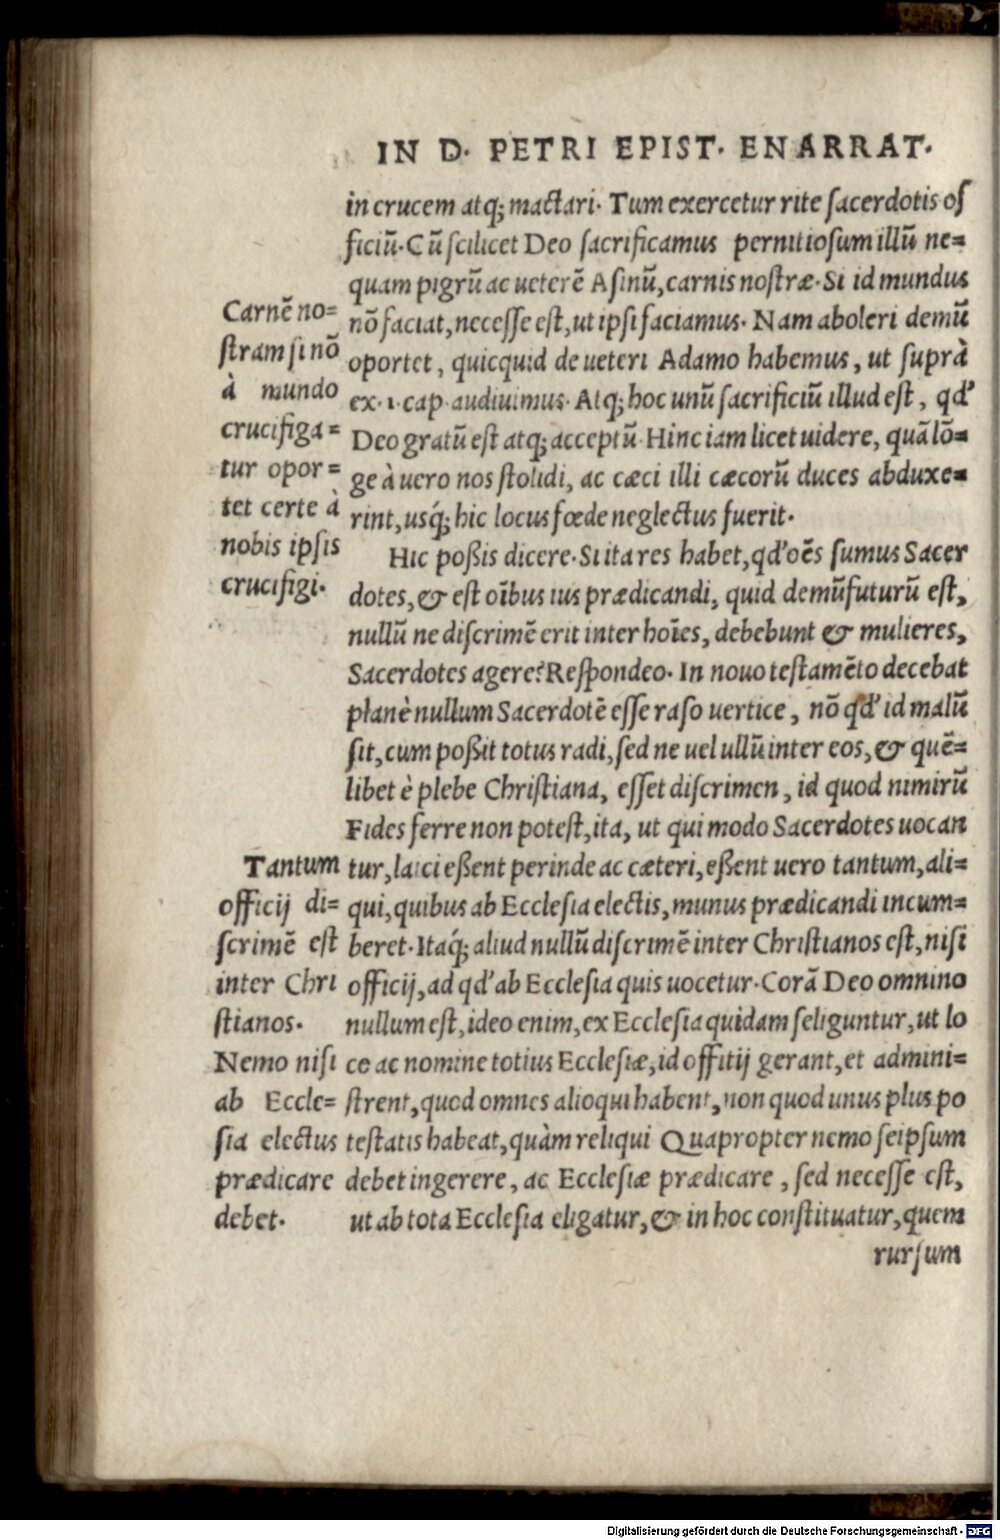 IN D. PETRI EPIST. ENARRAT.
in crucem atq; mactari. Tum exercetur rite sacerdotis of
ficiũ. Cũ scilicet Deo sacrificamus pernitiosum illũ ne=
quam pigrũ ac ueterẽ Asinũ, carnis nostræ. Si id mundus
nõ faciat, necesse est, ut ipsi faciamus. Nam aboleri demũ
oportet, quicquid de ueteri Adamo habemus, ut suprà
ex. 1. cap. audiuimus. Atq; hoc unũ sacrificiũ illud est, qd'
Deo gratũ est atq; acceptũ. Hinc iam licet uidere, quã lõ=
ge à uero nos stolidi, ac cæci illi cæcorũ duces abduxe=
rint, usq́; hic locus fœde neglectus fuerit.
Carnẽ no=
stram si nõ
à mundo
crucifiga=
tur opor=
tet certe à
nobis ipsis
crucifigi.
Hic poßis dicere. Si ita res habet, qd' oẽs sumus Sacer
dotes, & est oĩbus ius prædicandi, quid demũ futurũ est,
nullũ ne discrimẽ erit inter hoĩes, debebunt & mulieres,
Sacerdotes agere? Respondeo. In nouo testamẽto decebat
planè nullum Sacerdotẽ esse raso uertice, nõ qd' id malũ
sit, cum poßit totus radi, sed ne uel ullũ inter eos, & quẽ=
libet è plebe Christiana, esset discrimen, id quod nimirũ
Fides ferre non potest, ita, ut qui modo Sacerdotes uocan
tur, laici eßent perinde ac cæteri, eßent uero tantum, ali=
qui, quibus ab Ecclesia electis, munus prædicandi incum=
beret. Itaq́; aliud nullũ discrimẽ inter Christianos est, nisi
officij, ad qd' ab Ecclesia quis uocetur. Corã Deo omnino
nullum est, ideo enim, ex Ecclesia quidam seliguntur, ut lo
co ac nomine totius Ecclesiæ, id offitij gerant, et admini=
strent, quod omnes alioqui habent, non quod unus plus po
testatis habeat, quàm reliqui Quapropter nemo seipsum
debet ingerere, ac Ecclesiæ prædicare, sed necesse est,
ut ab tota Ecclesia eligatur, & in hoc constituatur, quem
Tantum
officij di=
scrimẽ est
inter Chri
stianos.
Nemo nisi
ab Eccle=
sia electus
prædicare
debet.
rursum
Digitalisierung gefördert durch die Deutsche Forschungsgemeinschaft - DFG